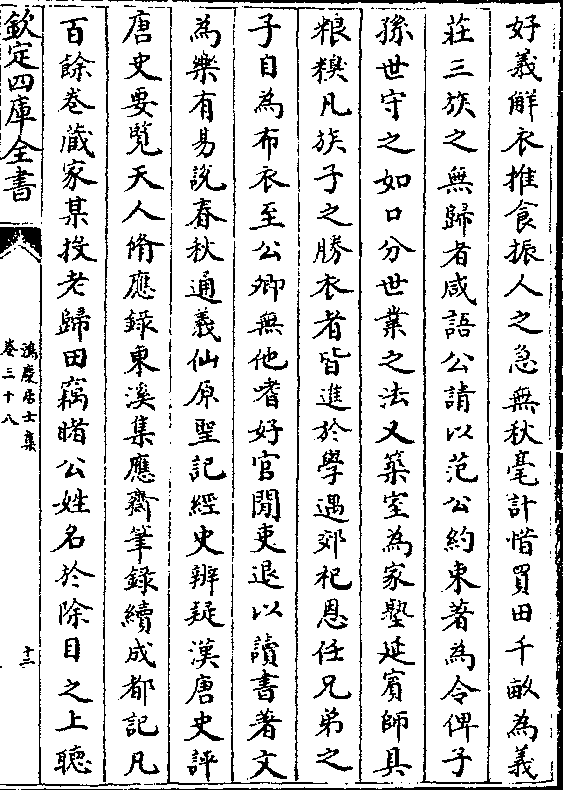 好義解衣推食振人之急無秋毫計惜買田千畝為義
莊三族之無歸者咸語公請以范公約束著為令俾子
孫世守之如口分世業之法又築室為家塾延賓師具
粮糗凡族子之勝衣者皆進於學遇郊祀恩任兄弟之
子自為布衣至公卿無他嗜好官閒吏退以讀書著文
為樂有易說春秋通義仙原聖記經史辨疑漢唐史評
唐史要覽天人脩應錄東溪集應齋筆錄續成都記凡
百餘巻藏家某投老歸田竊睹公姓名於除目之上聽
欽定四庫全書
鴻慶居士集
巻三十八
十三